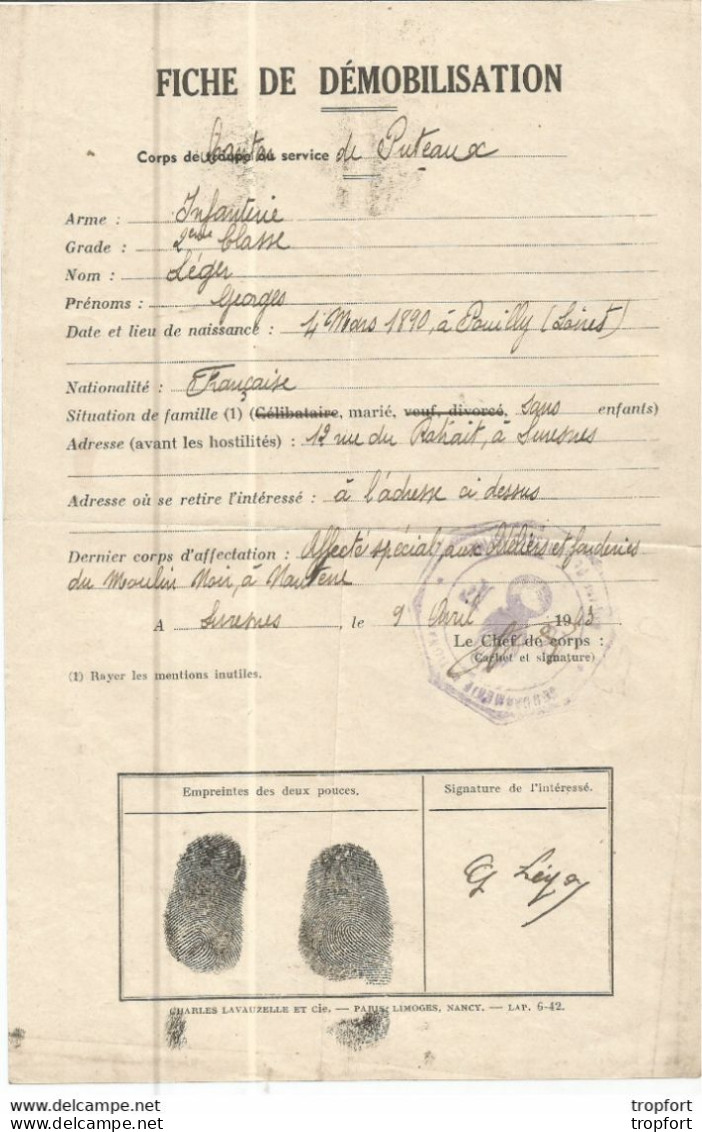 FICHE DE DÉMOBILISATION
Corps de troupe ou service de Puteaux
Arme : Infanterie
Grade : 2ème Classe
Nom : Léger
Prénoms : Georges
Date et lieu de naissance : 4 Mars 1890, à Pouilly (Loiret)
Nationalité : Française
Situation de famille (1) (Célibataire, marié, veuf, divorcé, sans enfants)
Adresse (avant les hostilités) : 12 rue du Ratrait, à Suresnes
Adresse où se retire l'intéressé : à l'adresse ci dessus
Dernier corps d'affectation : Affecté spécial aux Ateliers et fonderies
du Moulin Noir, à Nanterre
A Suresnes, le 9 Avril 1943
Le Chef de corps :
(Cachet et signature)
(1) Rayer les mentions inutiles.
GENDARMERIE
Empreintes des deux pouces. Signature de l'intéressé.
G Léger
CHARLES LAVAUZELLE ET Cie. — PARIS, LIMOGES, NANCY. — LAP. 6-42.
https://www.delcampe.net tropfort
https://www.delcampe.net tropfort